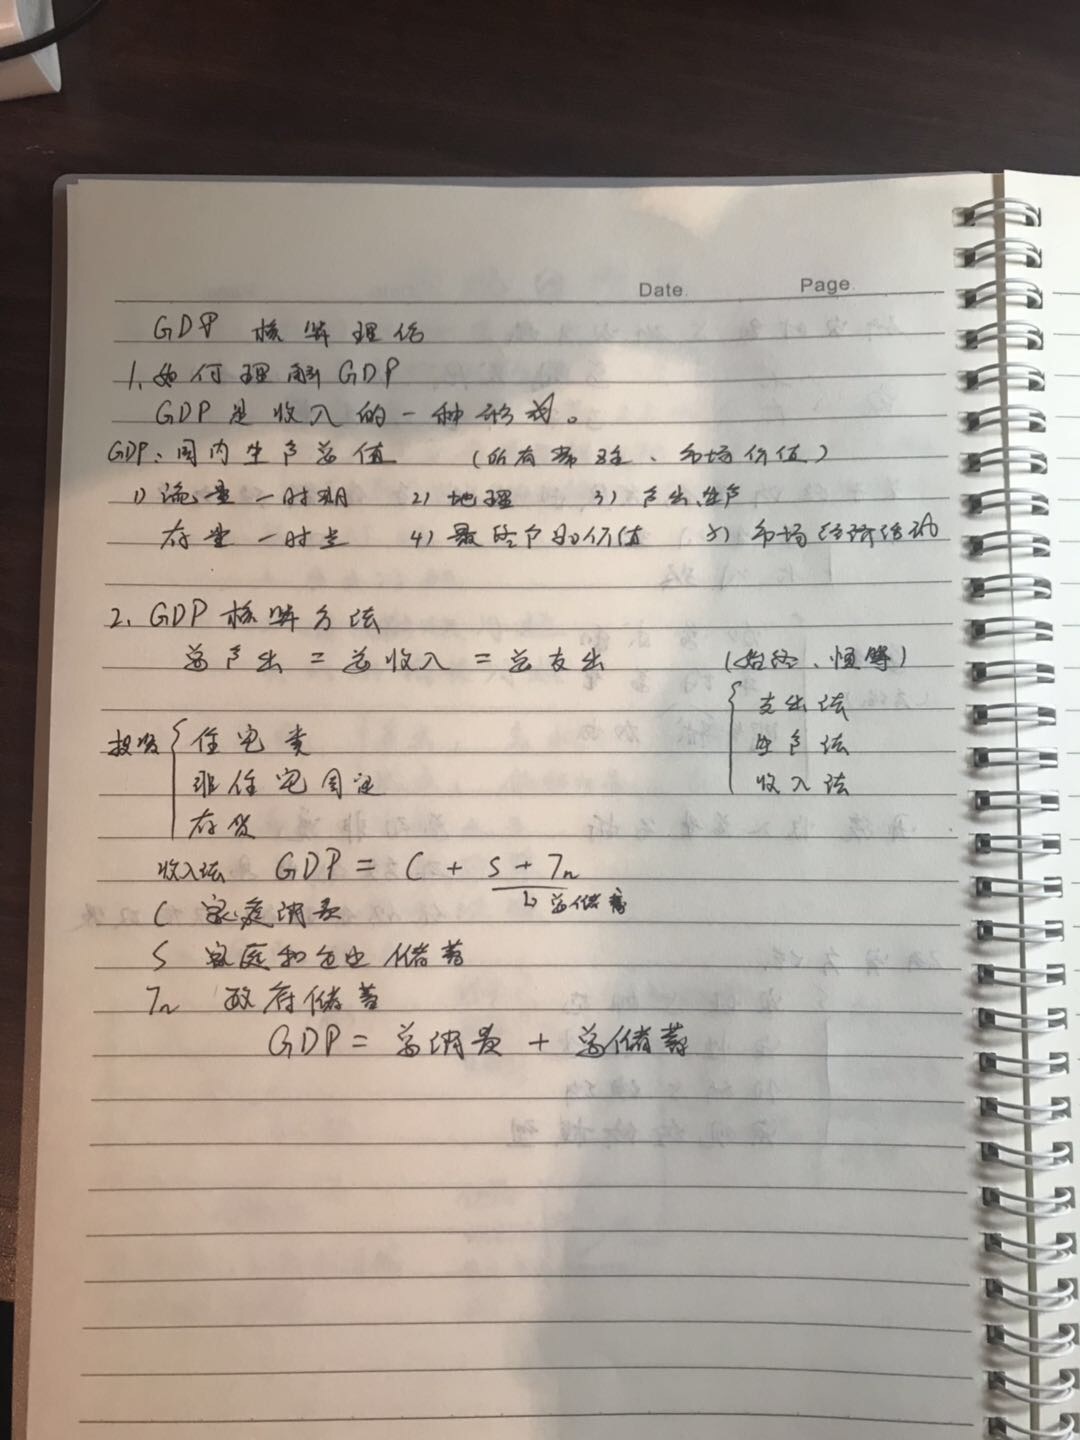 Date. Page.
GDP 核算理论
1. 如何理解GDP
GDP是收入的一种形式。
GDP、国内生产总值 (所有常驻、市场价值)
1) 流量一时期 2) 地理 3) 产出、生产
存量一时点 4) 最终产品的价值 5) 市场经济活动
2. GDP核算方法
总产出 = 总收入 = 总支出 (始终、恒等)
支出法
投资 住宅类 生产法
非住宅固定 收入法
存货
收入法 GDP = C + S + Tn
↳总储蓄
C 家庭消费
S 家庭和企业储蓄
Tn 政府储蓄
GDP = 总消费 + 总储蓄